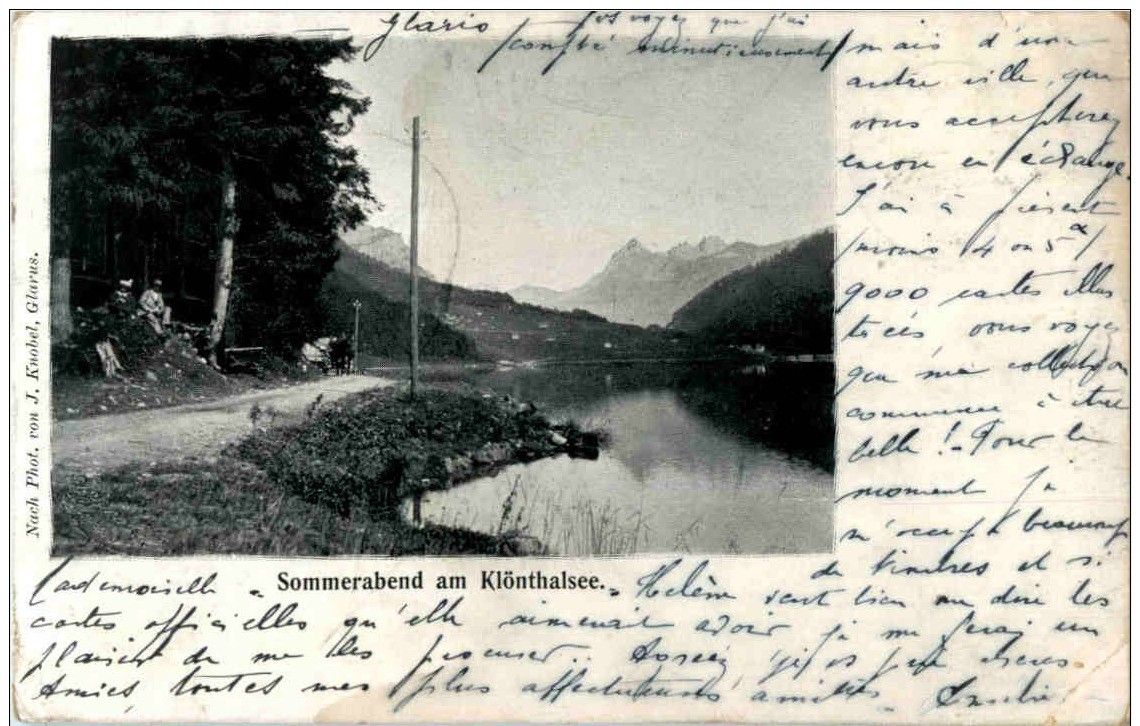 Glaris
vous voyez que j'ai
compté minutieusement
mais d'une
autre ville, que
vous accepterez
encore en échange.
J'ai à présent
(moins 4 ou 5)
9000 cartes illus
trées vous voyez
que ma collection
commence à être
belle! Pour le
moment je
m'occupe beaucoup
de timbres et si
Nach Phot. von J. Knobel, Glarus.
Sommerabend am Klönthalsee.
Mademoiselle Hélène veut bien me dire les
cartes officielles qu'elle aimerait avoir je me ferai un
plaisir de me les procurer. Agréez, chères
Amies, toutes mes plus affectueuses amitiés